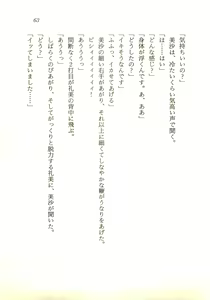 63
「気持ちいいの?」
「は……はい」
美沙は、冷たいくらい気高い声で聞く。
「どんな感じ?」
「身体が浮くんです。あ、ああ」
「どうしたの?」
「イキそうなんです」
「ふふっ、イカさせてあげる」
美沙の細いお手が、それ以上に細くてしなやかな鞭がうなりをあげた。
ピシィィィィィィィ!
「あううううっ」
間断なく二打目が礼美の背中に飛ぶ。
「あううっ」
しばらくのびあがり、そしてがっくりと脱力する礼美に、美沙が聞いた。
「どう?」
「イッてしまいました……」